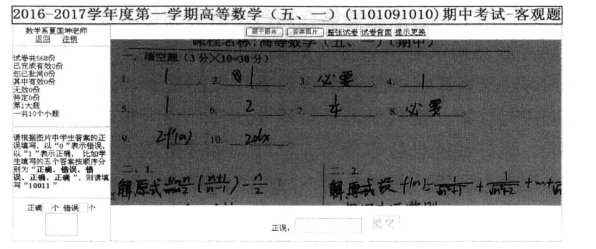 2016-2017学年度第一学期高等数学（五、一）(1101091010)期中考试-客观题
数学系夏国坤老师
返回 注销
整张试卷 试卷背面 提示更换
课程名称:高等数学（五、一）（期中）
试卷共568份
已完成有效0份
您已批阅0份
其中有效0份
无效0份
待定0份
第1大题
一共10个小题
一、填空题（3分×10=30分）
1. 1 2. 1 3. 必要 4. 1
5. 1 6. 2 7. 8. 必要
9. 2f'(a) 10. 2dx
请根据图片中学生答案的正误填写，以“0”表示错误，以“1”表示正确，比如学生填写的五个答案按顺序分别为“正确、错误、错误、正确、正确”，则请填写“10011”
二、1.
解 原式
二、2.
解 原式 设 f(n)=
正确 个 错误 个
正误:
提交